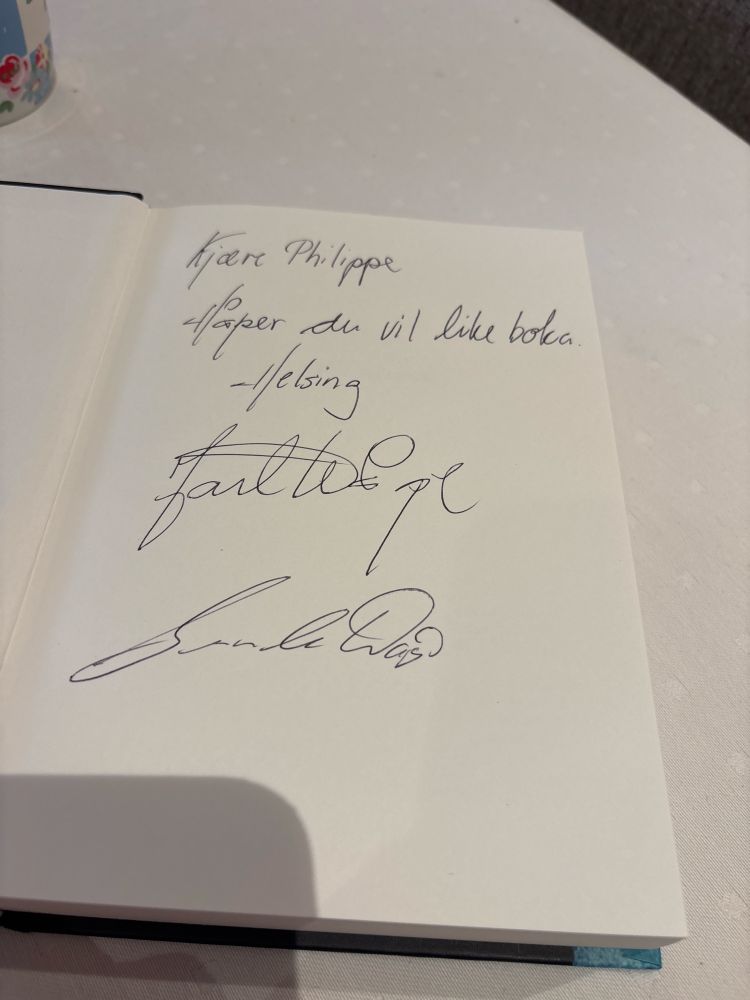 Kjære Philippe
Håper du vil like boka.
Helsing